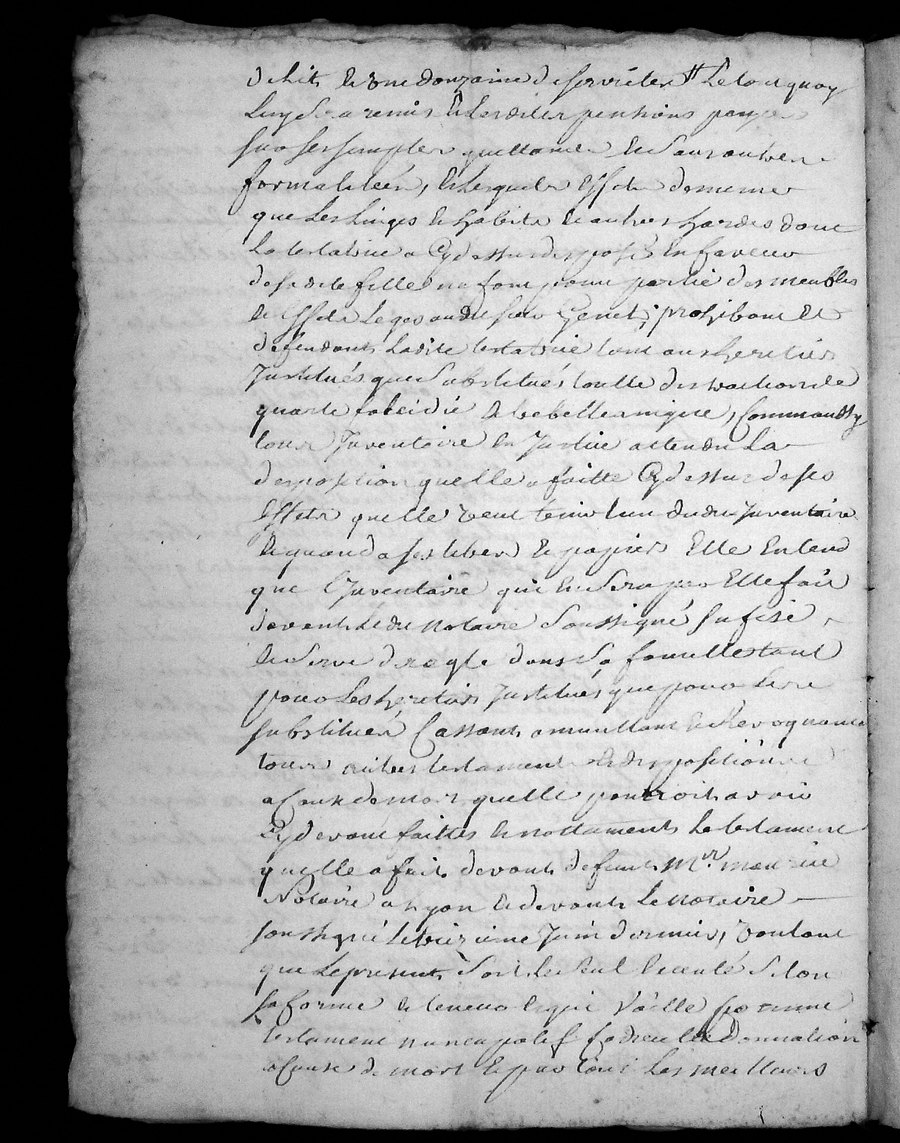 de lit, de une douzaine de serviettes # Le tout quoy
Luy Sera remis Et Lesdites pentions payées
sur ses simples quittances Et Sans autres
formalitées, Et Lesquels Effets de meme
que Les Linges Et habits Et autres hardes dont
La testatrice a Cy dessus disposé En faveur
de sadite fille ne font point partie des meubles
Et Effets Legés audit sieur Genet; prohibant Et
defendant Ladite testatrice tant aux heretiers
Justitués que Substitués toutte distraction de
quarte falcidie Et trebellianique, Comme aussy
tous Juventaire En Justice attendu La
disposition quelle a faitte Cy dessus de ses
Effets quelle veut tenir lieu dudit Juventaire
Et quand a ses titres Et papiers Elle Entend
que L'Juventaire qui En Sera par Elle fait
devant Ledit Notaire Soussigné Sufise,
Et Serve de regle dans Sa famille tant
pour Les heretiers Justitués que pour Les
Substitués Cassant annullant Et Revoquant
tous autres testaments Et dispositions
a Cause de mort quelle pourroit avoir
Cy devant faittes Et nottament Le testament
quelle a fait devant deffunt Mr.
Notaire a Lyon Et devant Le Notaire
soussigné Le treizieme Juin dernier, voulant
que Le present Soit Le Seul Executé Selon
sa forme Et teneur Et qui vaille Comme
testament nuncupatif Codicille Donnation
a Cause de mort Et par tous Les meilleurs